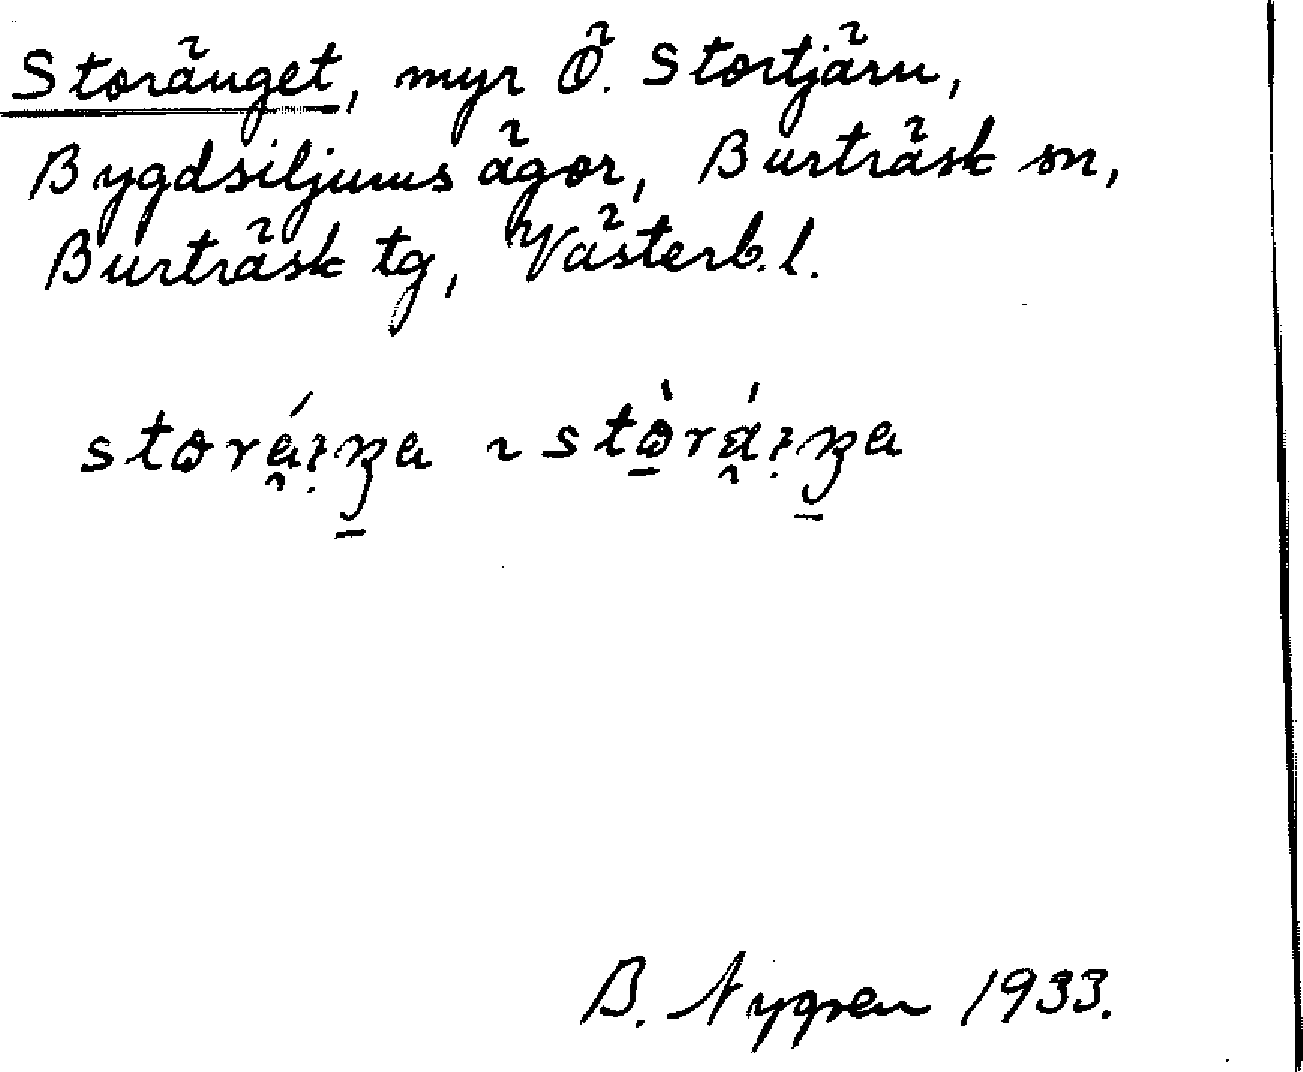 Storänget, myr Ö. Stortjärn,
Bygdsiljums ägor, Burträsk sn,
Burträsk tg, Västerb. l.
B. Nygren 1933.